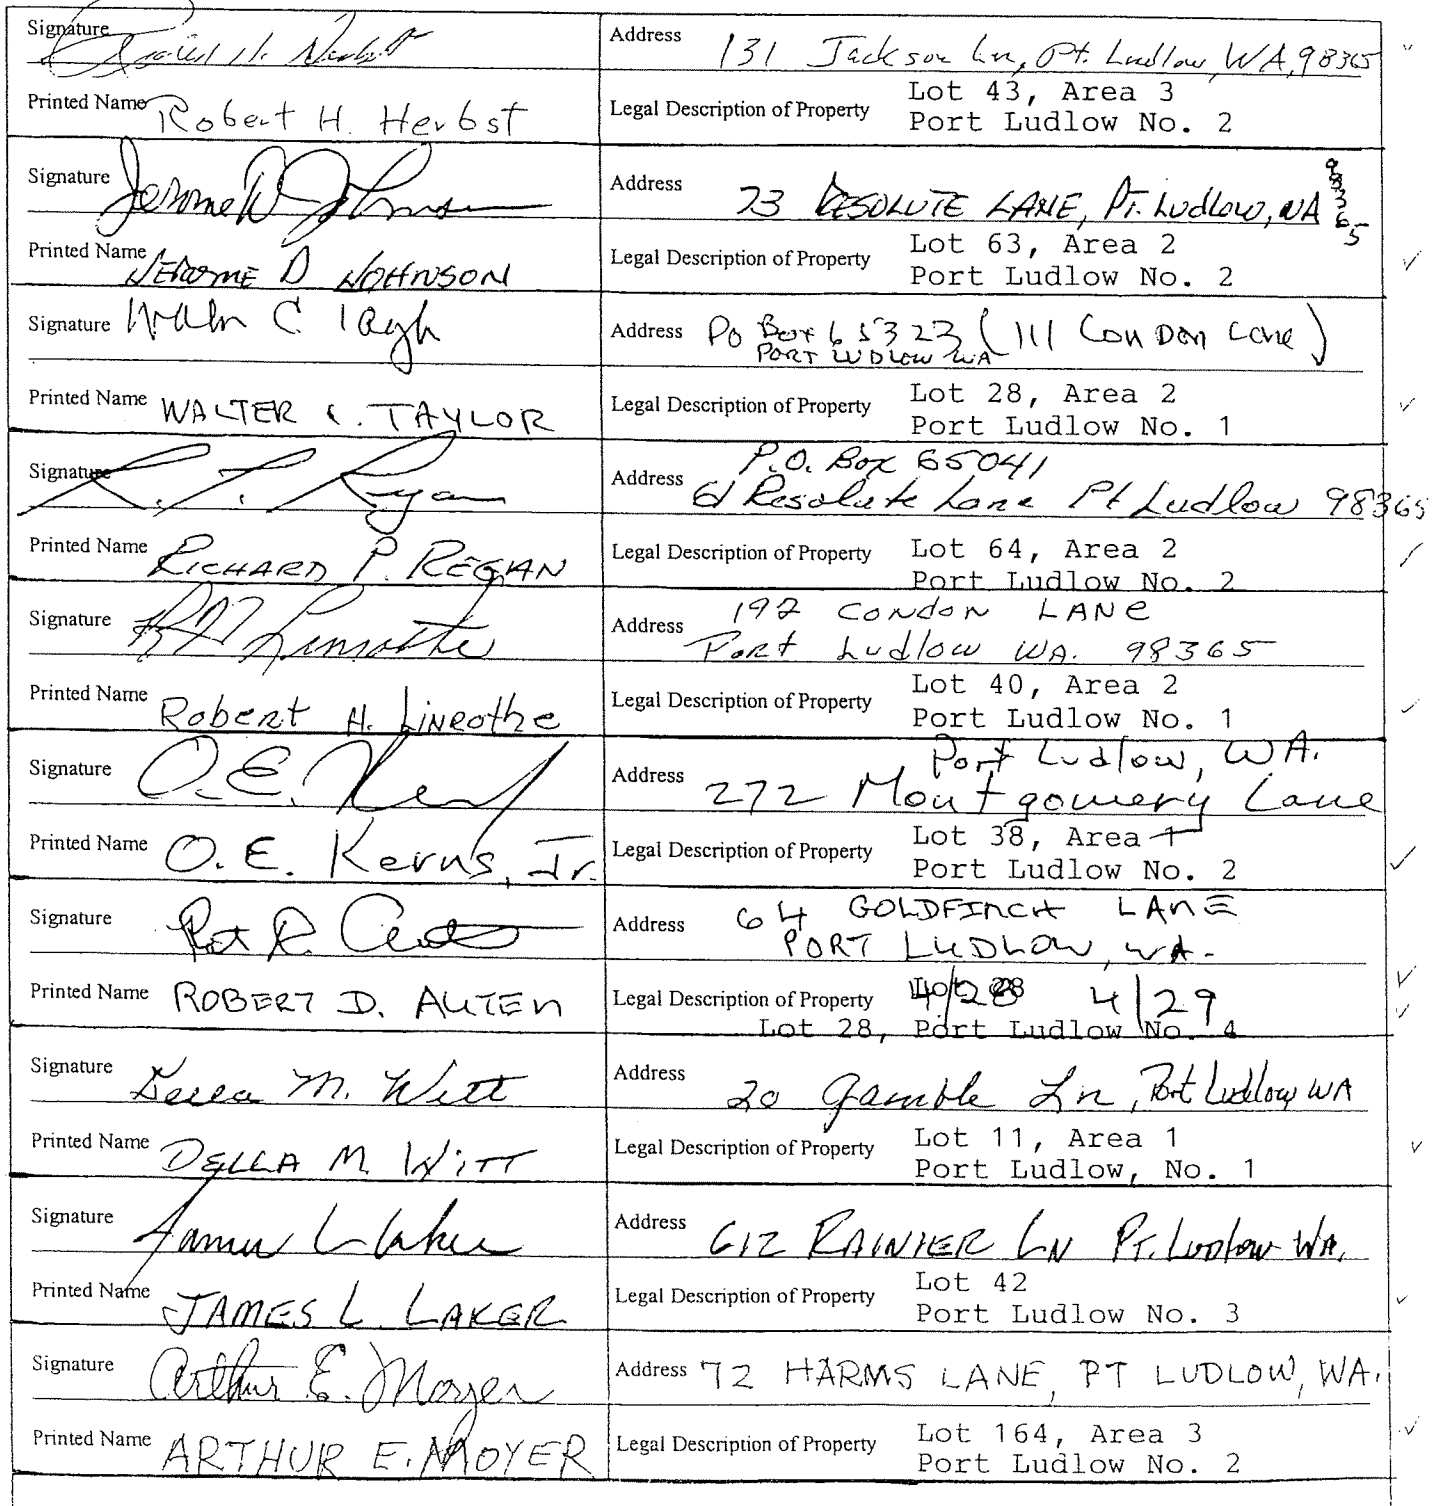 Signature
Address 131 Jackson Ln, Pt. Ludlow, WA, 98365
Printed Name Robert H. Herbst
Legal Description of Property Lot 43, Area 3
Port Ludlow No. 2
Signature Jerome D Johnson
Address 73 RESOLUTE LANE, PT. Ludlow, WA 98365
Printed Name JEROME D JOHNSON
Legal Description of Property Lot 63, Area 2
Port Ludlow No. 2
Signature
Address PO Box 65323 (111 ConDon Lane)
PORT LUDLOW WA
Printed Name WALTER C. TAYLOR
Legal Description of Property Lot 28, Area 2
Port Ludlow No. 1
Signature
Address P.O. Box 65041
61 Resolute Lane Pt Ludlow 98365
Printed Name RICHARD P. REGAN
Legal Description of Property Lot 64, Area 2
Port Ludlow No. 2
Signature
Address 192 CONDON LANE
Port Ludlow WA. 98365
Printed Name Robert H. Linrothe
Legal Description of Property Lot 40, Area 2
Port Ludlow No. 1
Signature
Address Port Ludlow, WA.
272 Montgomery Lane
Printed Name O.E. Kerns, Jr.
Legal Description of Property Lot 38, Area 1
Port Ludlow No. 2
Signature
Address 64 GOLDFINCH LANE
PORT LUDLOW, WA.
Printed Name ROBERT D. AUTEN
Legal Description of Property 4/28 4/29
Lot 28, Port Ludlow No. 4
Signature Della M. Witt
Address 20 Gamble Ln, Port Ludlow WA
Printed Name DELLA M. WITT
Legal Description of Property Lot 11, Area 1
Port Ludlow, No. 1
Signature James L Laker
Address 612 RAINIER LN PT. Ludlow WA.
Printed Name JAMES L. LAKER
Legal Description of Property Lot 42
Port Ludlow No. 3
Signature Arthur E. Moyer
Address 72 HARMS LANE, PT LUDLOW, WA.
Printed Name ARTHUR E. MOYER
Legal Description of Property Lot 164, Area 3
Port Ludlow No. 2